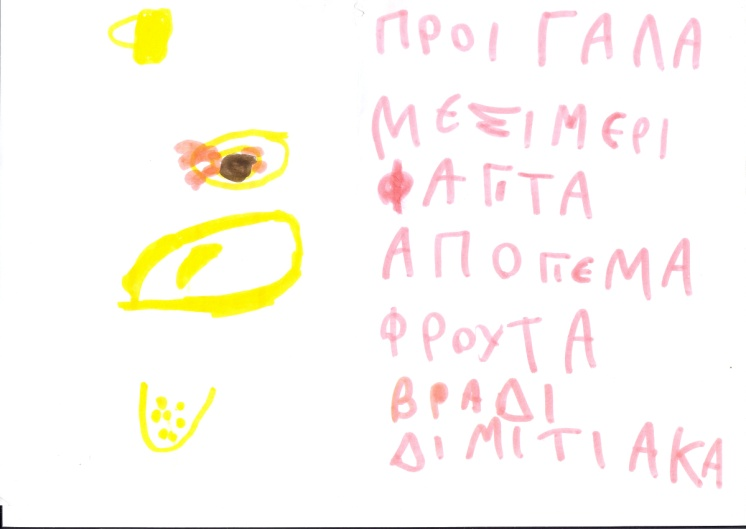 ΠΡΟΙ ΓΑΛΑ
ΜΕΣΙΜΕΡΙ
ΦΑΓΙΤΑ
ΑΠΟΓΙΕΜΑ
ΦΡΟΥΤΑ
ΒΡΑΔΙ
ΔΙΜΙΤΙΑΚΑ